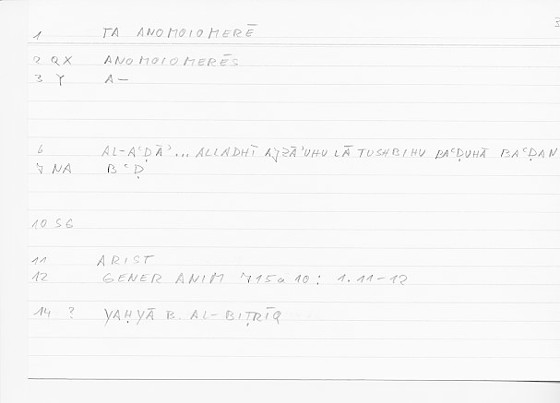 1 TA ANOMOIOMERĒ
2 QX ANOMOIOMERĒS
3 Y A–
6 AL-AʿḌĀʾ... ALLADHĪ AJZĀʾUHU LĀ TUSHBIHU BAʿḌUHĀ BAʿḌAN
7 NA BʿḌ
10 SG
11 ARIST
12 GENER ANIM 715a10: 1.11-12
14 ? YAḤYĀ B. AL-BIṬRĪQ